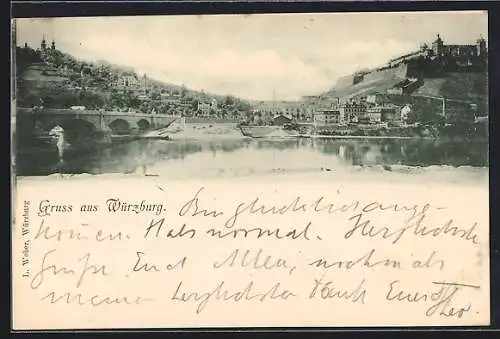 Gruss aus Würzburg.
Bin glücklich ange-
kommen. Hals normal. Herzlichste
Grüße Euch Allen, nochmals
meinen herzlichsten Dank Euer
Leo.
L. Weber, Würzburg